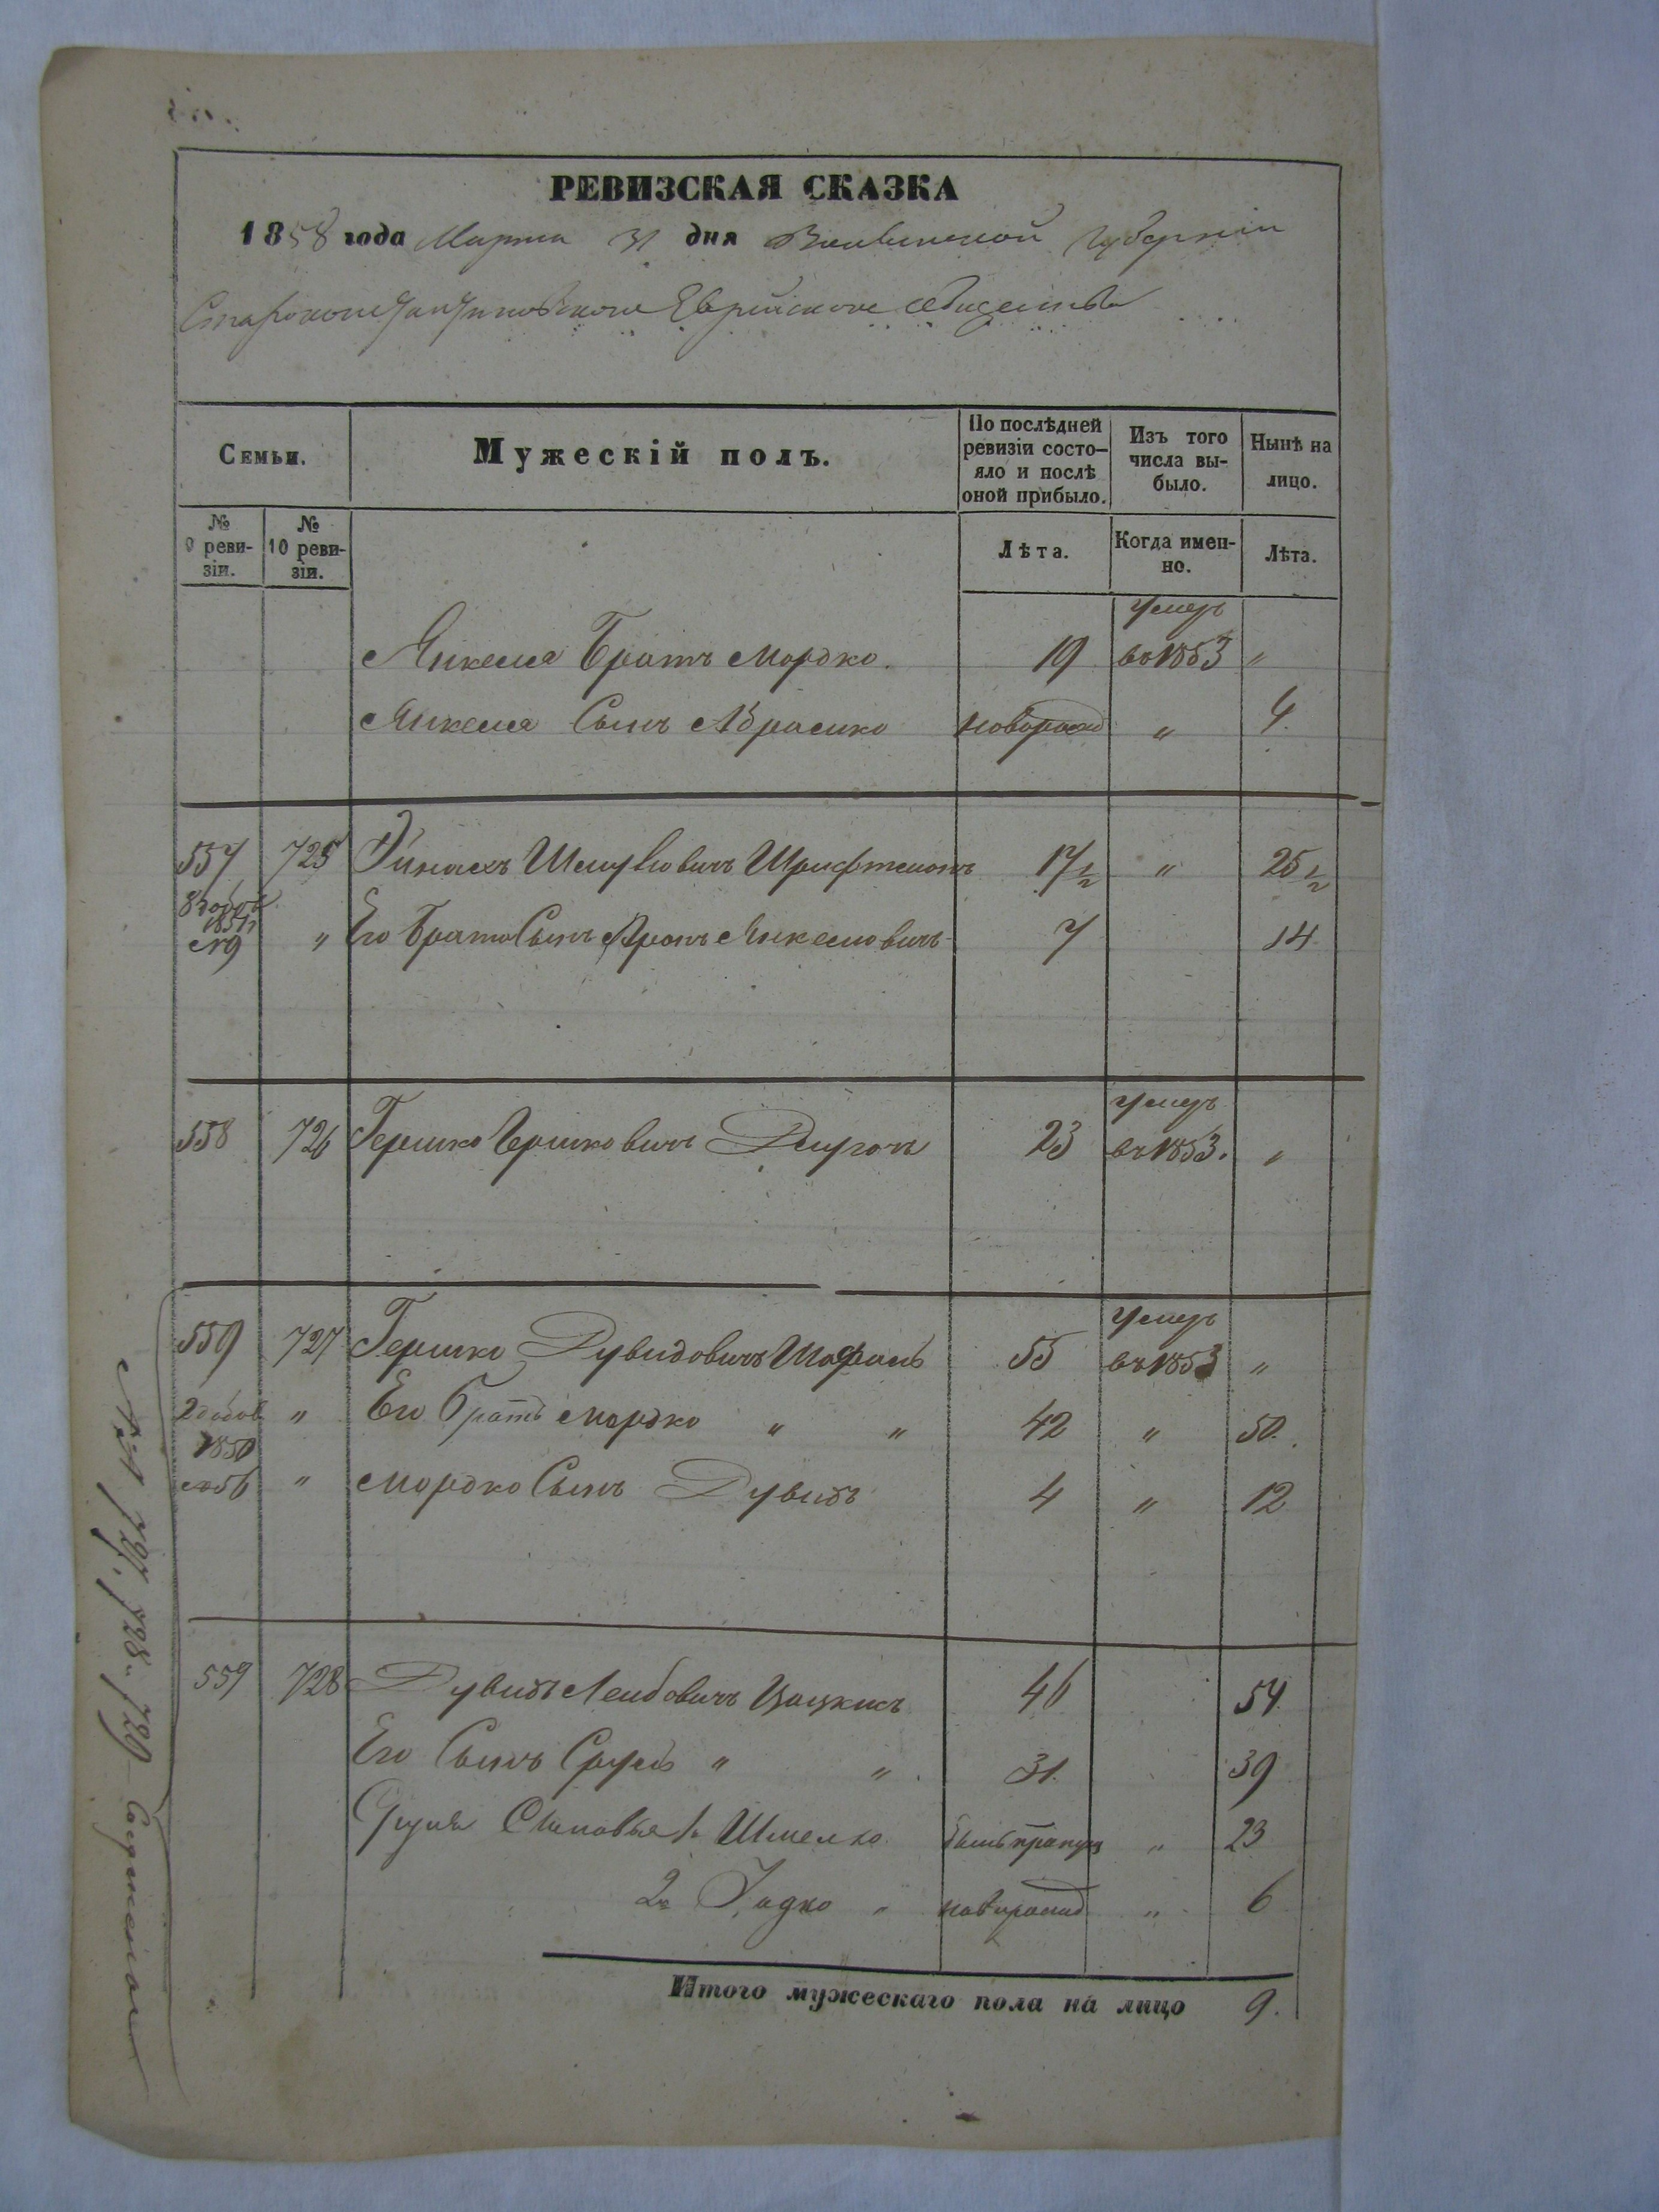 РЕВИЗСКАЯ СКАЗКА
1858 года Марта 31 дня Волынской Губерніи
Староконстантиновскаго Еврейскаго общества
Семьи.
Мужескій полъ.
По послѣдней ревизіи состо-
яло и послѣ
оной прибыло.
Изъ того
числа вы-
было.
Нынѣ на
лицо.
№
9 реви-
зіи.
№
10 реви-
зіи.
Лѣта.
Когда имен-
но.
Лѣта.
Янкеля Братъ Мордко 19 умеръ въ 1853 "
Янкеля Сынъ Абрамко новорожд " 4.
557 725 Шмулiовичъ 17 1/2 " 25 1/2
№9 " Его Брата Сынъ Аронъ Янкелiовичъ 7 14
558 726 Гершко Гершковичъ 23 умеръ въ 1853. "
559 727 Гершко Дувидовичъ Шафранъ 55 умеръ въ 1853 "
2 добав " Его Братъ Мордко " " 42 " 50.
1850
№56 " Мордко Сынъ Дувидъ 4 " 12
559 728 Дувидъ Лейбовичъ Цацкисъ 46 54.
Его Сынъ Сруль " " 31. 39
Сруля Сыновья 1. Шмелко " 23
2й " новорожд " 6
Итого мужескаго пола на лицо 9.
727. 728. 729